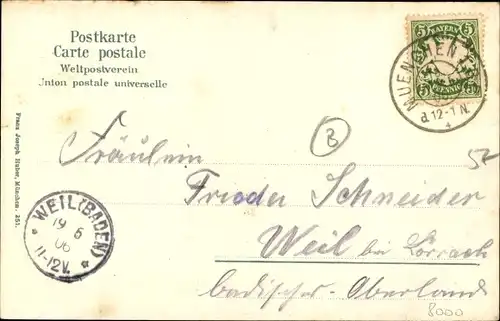 Postkarte
Carte postale
Weltpostverein
Union postale universelle
BAYERN
5 5
5 5
PFENNIG
MUENCHEN
d.12-1 N.
Franz Joseph Huber, München - 251.
Fräulein
Frieda Schneider
Weil bei Lörrach
badisches Oberland
WEIL (BADEN)
19 5
06
11-12V.
8000